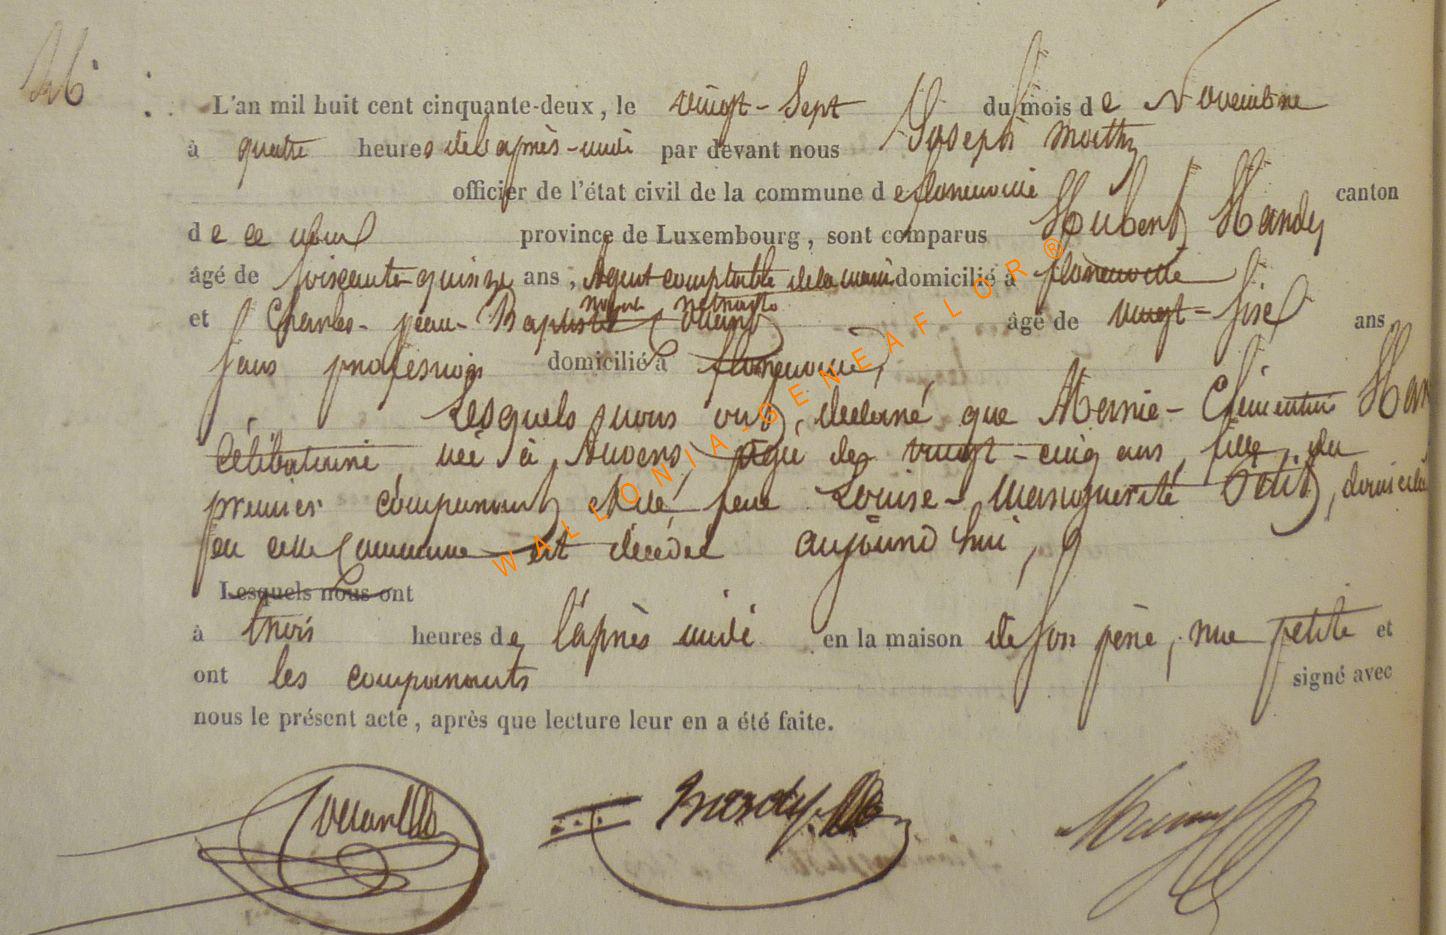 L'an mil huit cent cinquante-deux, le vingt-Sept du mois de Novembre
à quatre heures de l'après-midi par devant nous Joseph Mathy
officier de l'état civil de la commune de florenville canton
de ce nom province de Luxembourg, sont comparus Hubert Hardy
âgé de soixante quinze ans, Agent comptable de la marine domicilié à florenville
et Charles-jean-Baptiste âgé de vingt-six ans
sans profession domicilié à florenville,
Lesquels nous ont déclaré que Marie-Clémentine Har
Célibataire, née à Anvers, agée de vingt-cinq ans, fille du
premier comparant et de feue Louise-Marguerite Petit, domicilié
en cette Commune est décédée aujourd'hui,
Lesquels nous ont
à trois heures de l'après midi en la maison de son père, rue petite et
ont les comparants signé avec
nous le présent acte, après que lecture leur en a été faite.
Hardy
WALLONIA-GENEAFLOR®